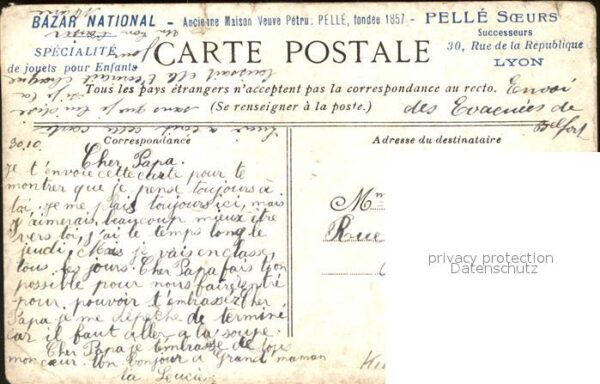 BAZAR NATIONAL - Ancienne Maison Veuve Pétru. PELLÉ, fondée 1857 - PELLÉ SŒURS
Successeurs
SPÉCIALITÉ
de jouets pour Enfants
CARTE POSTALE
30, Rue de la République
LYON
Tous les pays étrangers n'acceptent pas la correspondance au recto.
(Se renseigner à la poste.)
Envoi
des Evacuées de
Belfort
Correspondance
Adresse du destinataire
30.10.
Cher Papa.
Je t'envoie cette carte pour te
montrer que je pense toujours à
toi. Je me plais toujours ici, mais
j'aimerais beaucoup mieux être
vers toi, j'ai le temps long le
jeudi, Mais je vais en classe
tous les jours. Cher Papa fais ton
possible pour nous faire rentré
pour pouvoir t'embrassé. Cher
Papa je me dépêche de terminé
car il faut aller à la soupe.
Cher Papa je t'embrasse de tout
mon cœur. Un bonjour à Grand'maman
ta Lucie
Rue
privacy protection
Datenschutz